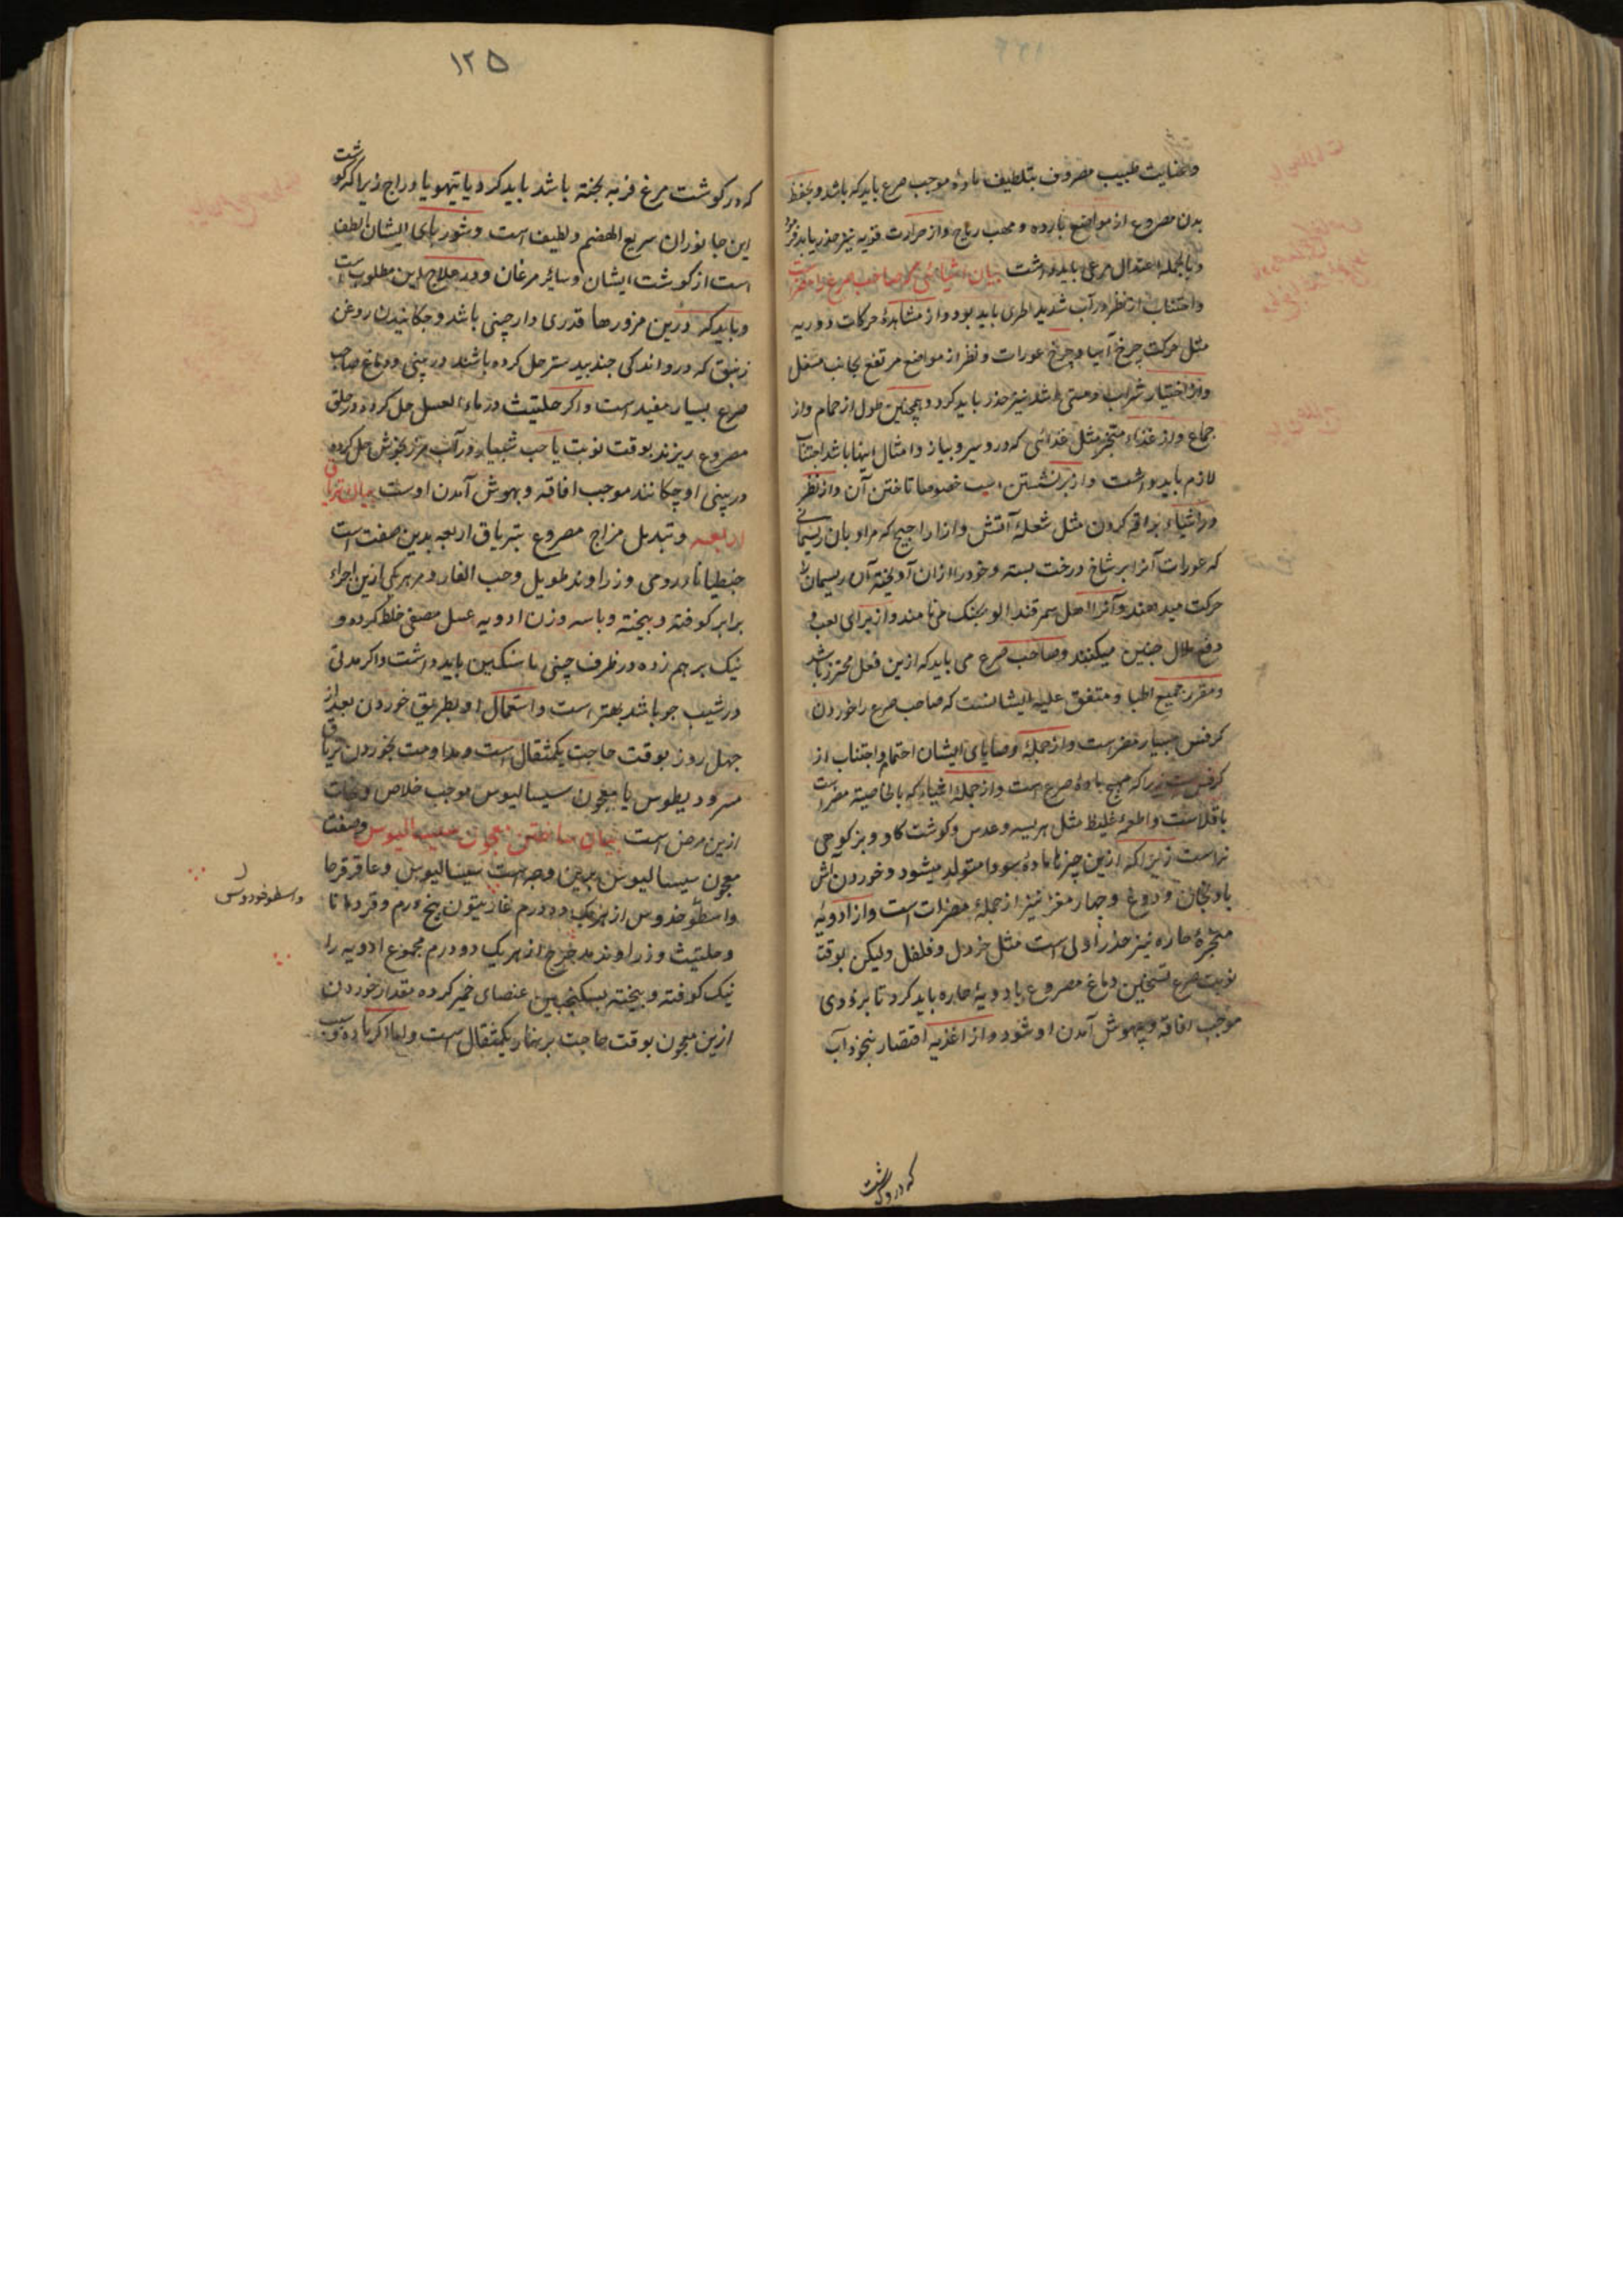 وعنایت طبیب مصروف بتلطیف مادهٔ موجب صرع باید که باشد وبحفظ
بدن مصروع از مواضع بارده ومهب ریاح واز حرارت قویه نیز حذر باید
وبالجمله اعتدال مرعی باید داشت بیان اشیائی که صاحب صرع را مضر است
واجتناب از نظر در آب شدید الجری باید بود واز مشاهدهٔ حرکات دوریه
مثل حرکت چرخ آسیا وچرخ عورات ونظر از مواضع مرتفع بجانب مستفل
واز اختیار شراب ومستی نیز حذر باید کرد وهمچنین طول از حمام واز
جماع واز غذاء متبخر مثل غذائی که درو سیر وپیاز وامثال اینها باشد اجتناب
لازم باید داشت واز برنشستن اسب خصوصا تاختن آن واز نظر
در اشیاء براقه کردن مثل شعلهٔ آتش واز اراجیح که مراد بان ریسمانی
که عورات آنرا بر شاخ درخت بسته وخود را ازان آویخته آن ریسمان را
حرکت میدهند وآنرا اهل سمرقند می نامند واز برای لعب و
دفع ملال چنین میکنند وصاحب صرع می باید که ازین فعل محترز باشد
ومقرر جمیع اطبا ومتفق علیه ایشانست که صاحب صرع را خوردن
کرفس بسیار مضر است واز جملهٔ وصایای ایشان احتما واجتناب از
کرفس است زیرا که مهیج مادهٔ صرع است واز جملهٔ اشیاء که بالخاصیته مضر است
باقلاست واطعمهٔ غلیظ مثل هریسه وعدس وکوشت کاو وبز کوهی
نراست زیرا که ازین چیزها مادهٔ سودا متولد میشود وخوردن آش
بادنجان ودوغ وجمار مغز نیز از جملهٔ مضرات است واز ادویهٔ
مبخرهٔ حاره نیز حذر اولی است مثل خردل وفلفل ولیکن بوقت
نوبت صرع تسخین دماغ مصروع بادویهٔ حاره باید کرد تا بزودی
موجب افاقه وبهوش آمدن او شود واز اغذیه اقتصار بنخود آب
که در کوشت
۱۲۵
که در کوشت مرغ فربه پخته باشد باید کرد ویا تیهو یا دراج زیرا که کوشت
این جانوران سریع الهضم ولطیف است وشوربای ایشان الطف
است از کوشت ایشان وسائر مرغان ودر علاج این مطلوب است
وباید که درین مزورها قدری دارچینی باشد وچکانیدن روغن
زنبق که درو اندکی جندبیدستر حل کرده باشند در بینی ودماغ صاحب
صرع بسیار مفید است واکر حلتیت در ماء العسل حل کرده در حلق
مصروع ریزند بوقت نوبت یا حب شبیار در آب مرزنجوش حل کرده
در بینی او چکانند موجب افاقه وبهوش آمدن اوست بیان تریاق
اربعه وتبدیل مزاج مصروع بتریاق اربعه بدین صفت است
جنطیانا رومی وزراوند طویل وحب الغار ومر هر یکی ازین اجزاء
برابر کوفته وبیخته وبا سه وزن ادویه عسل مصفی خلط کرده و
نیک بر هم زده در ظرف چینی یا سنکین باید داشت واکر مدتی
در شیب جو باشد بهتر است واستعمال او بطریق خوردن بعد از
چهل روز بوقت حاجت یکمثقال است ومداومت بخوردن تریاق
مسرودیطوس یا معجون سیسالیوس موجب خلاص ونجات
ازین مرض است بیان ساختن معجون سیسالیوس وصفت
معجون سیسالیوس برین وجه است سیسالیوس وعاقرقرحا
واسطوخدوس از هر یک ده درم غاریقون پنج درم وقردمانا
وحلتیت وزراوند مدحرج از هر یک دو درم مجموع ادویه را
نیک کوفته وبیخته بسکنجبین عنصلی خمیر کرده مقدار خوردن
ازین معجون بوقت حاجت بر نهار یکمثقال است واما اکر ماده
واسطوخودوس